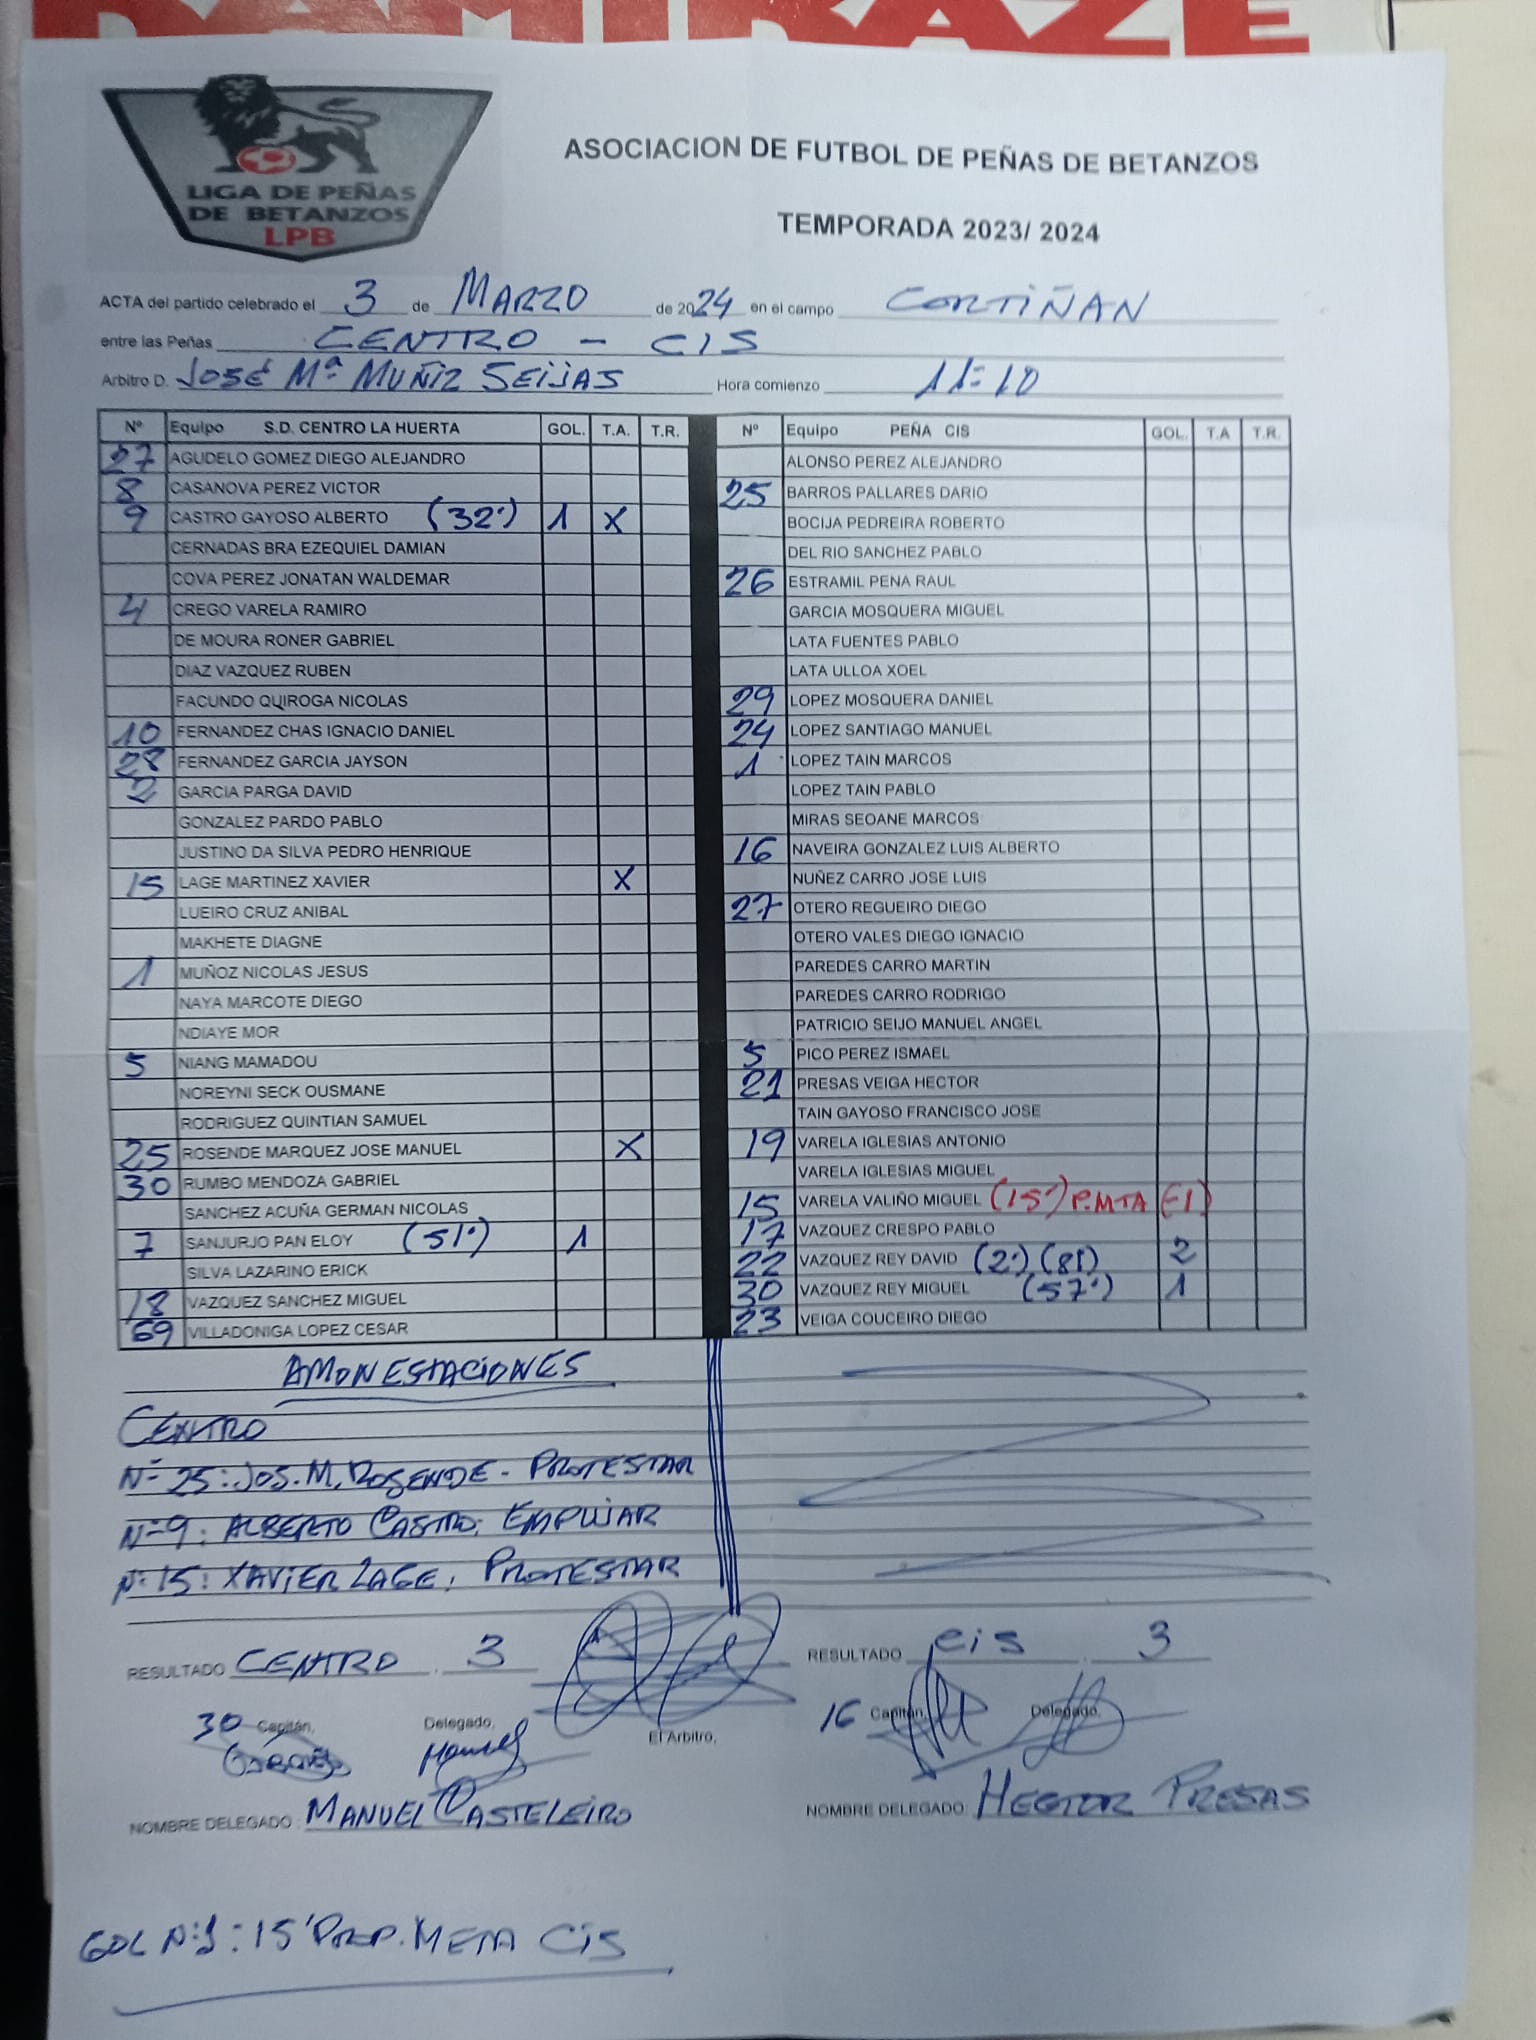 RAMIRAZE
LIGA DE PEÑAS
DE BETANZOS
LPB
ASOCIACION DE FUTBOL DE PEÑAS DE BETANZOS
TEMPORADA 2023/ 2024
ACTA del partido celebrado el 3 de MARZO de 2024 en el campo CORTIÑAN
entre las Peñas CENTRO - CIS
Arbitro D. JOSÉ Mª MUÑIZ SEIJAS Hora comienzo 11:10
Nº Equipo S.D. CENTRO LA HUERTA GOL. T.A. T.R. Nº Equipo PEÑA CIS GOL. T.A T.R.
27 AGUDELO GOMEZ DIEGO ALEJANDRO
8 CASANOVA PEREZ VICTOR
9 CASTRO GAYOSO ALBERTO (32') 1 X
CERNADAS BRA EZEQUIEL DAMIAN
COVA PEREZ JONATAN WALDEMAR
4 CREGO VARELA RAMIRO
DE MOURA RONER GABRIEL
DIAZ VAZQUEZ RUBEN
FACUNDO QUIROGA NICOLAS
10 FERNANDEZ CHAS IGNACIO DANIEL
28 FERNANDEZ GARCIA JAYSON
2 GARCIA PARGA DAVID
GONZALEZ PARDO PABLO
JUSTINO DA SILVA PEDRO HENRIQUE
15 LAGE MARTINEZ XAVIER X
LUEIRO CRUZ ANIBAL
MAKHETE DIAGNE
1 MUÑOZ NICOLAS JESUS
NAYA MARCOTE DIEGO
NDIAYE MOR
5 NIANG MAMADOU
NOREYNI SECK OUSMANE
RODRIGUEZ QUINTIAN SAMUEL
25 ROSENDE MARQUEZ JOSE MANUEL X
30 RUMBO MENDOZA GABRIEL
SANCHEZ ACUÑA GERMAN NICOLAS
7 SANJURJO PAN ELOY (51') 1
SILVA LAZARINO ERICK
18 VAZQUEZ SANCHEZ MIGUEL
69 VILLADONIGA LOPEZ CESAR
ALONSO PEREZ ALEJANDRO
25 BARROS PALLARES DARIO
BOCIJA PEDREIRA ROBERTO
DEL RIO SANCHEZ PABLO
26 ESTRAMIL PENA RAUL
GARCIA MOSQUERA MIGUEL
LATA FUENTES PABLO
LATA ULLOA XOEL
29 LOPEZ MOSQUERA DANIEL
24 LOPEZ SANTIAGO MANUEL
1 LOPEZ TAIN MARCOS
LOPEZ TAIN PABLO
MIRAS SEOANE MARCOS
16 NAVEIRA GONZALEZ LUIS ALBERTO
NUÑEZ CARRO JOSE LUIS
27 OTERO REGUEIRO DIEGO
OTERO VALES DIEGO IGNACIO
PAREDES CARRO MARTIN
PAREDES CARRO RODRIGO
PATRICIO SEIJO MANUEL ANGEL
5 PICO PEREZ ISMAEL
21 PRESAS VEIGA HECTOR
TAIN GAYOSO FRANCISCO JOSE
19 VARELA IGLESIAS ANTONIO
VARELA IGLESIAS MIGUEL
15 VARELA VALIÑO MIGUEL (15') P.MTA (-1)
17 VAZQUEZ CRESPO PABLO
22 VAZQUEZ REY DAVID (2') (81) 2
30 VAZQUEZ REY MIGUEL (57') 1
23 VEIGA COUCEIRO DIEGO
AMONESTACIONES
CENTRO
Nº 25: JOS. M. ROSENDE - PROTESTAR
Nº 9: ALBERTO CASTRO: EMPUJAR
Nº 15: XAVIER LAGE: PROTESTAR
RESULTADO CENTRO 3 RESULTADO CIS 3
30 Capitán, Delegado, El Arbitro, 16 Capitán, Delegado,
Manuel
NOMBRE DELEGADO: MANUEL CASTELEIRO NOMBRE DELEGADO: HECTOR PRESAS
GOL Nº 1: 15' PROP. META CIS